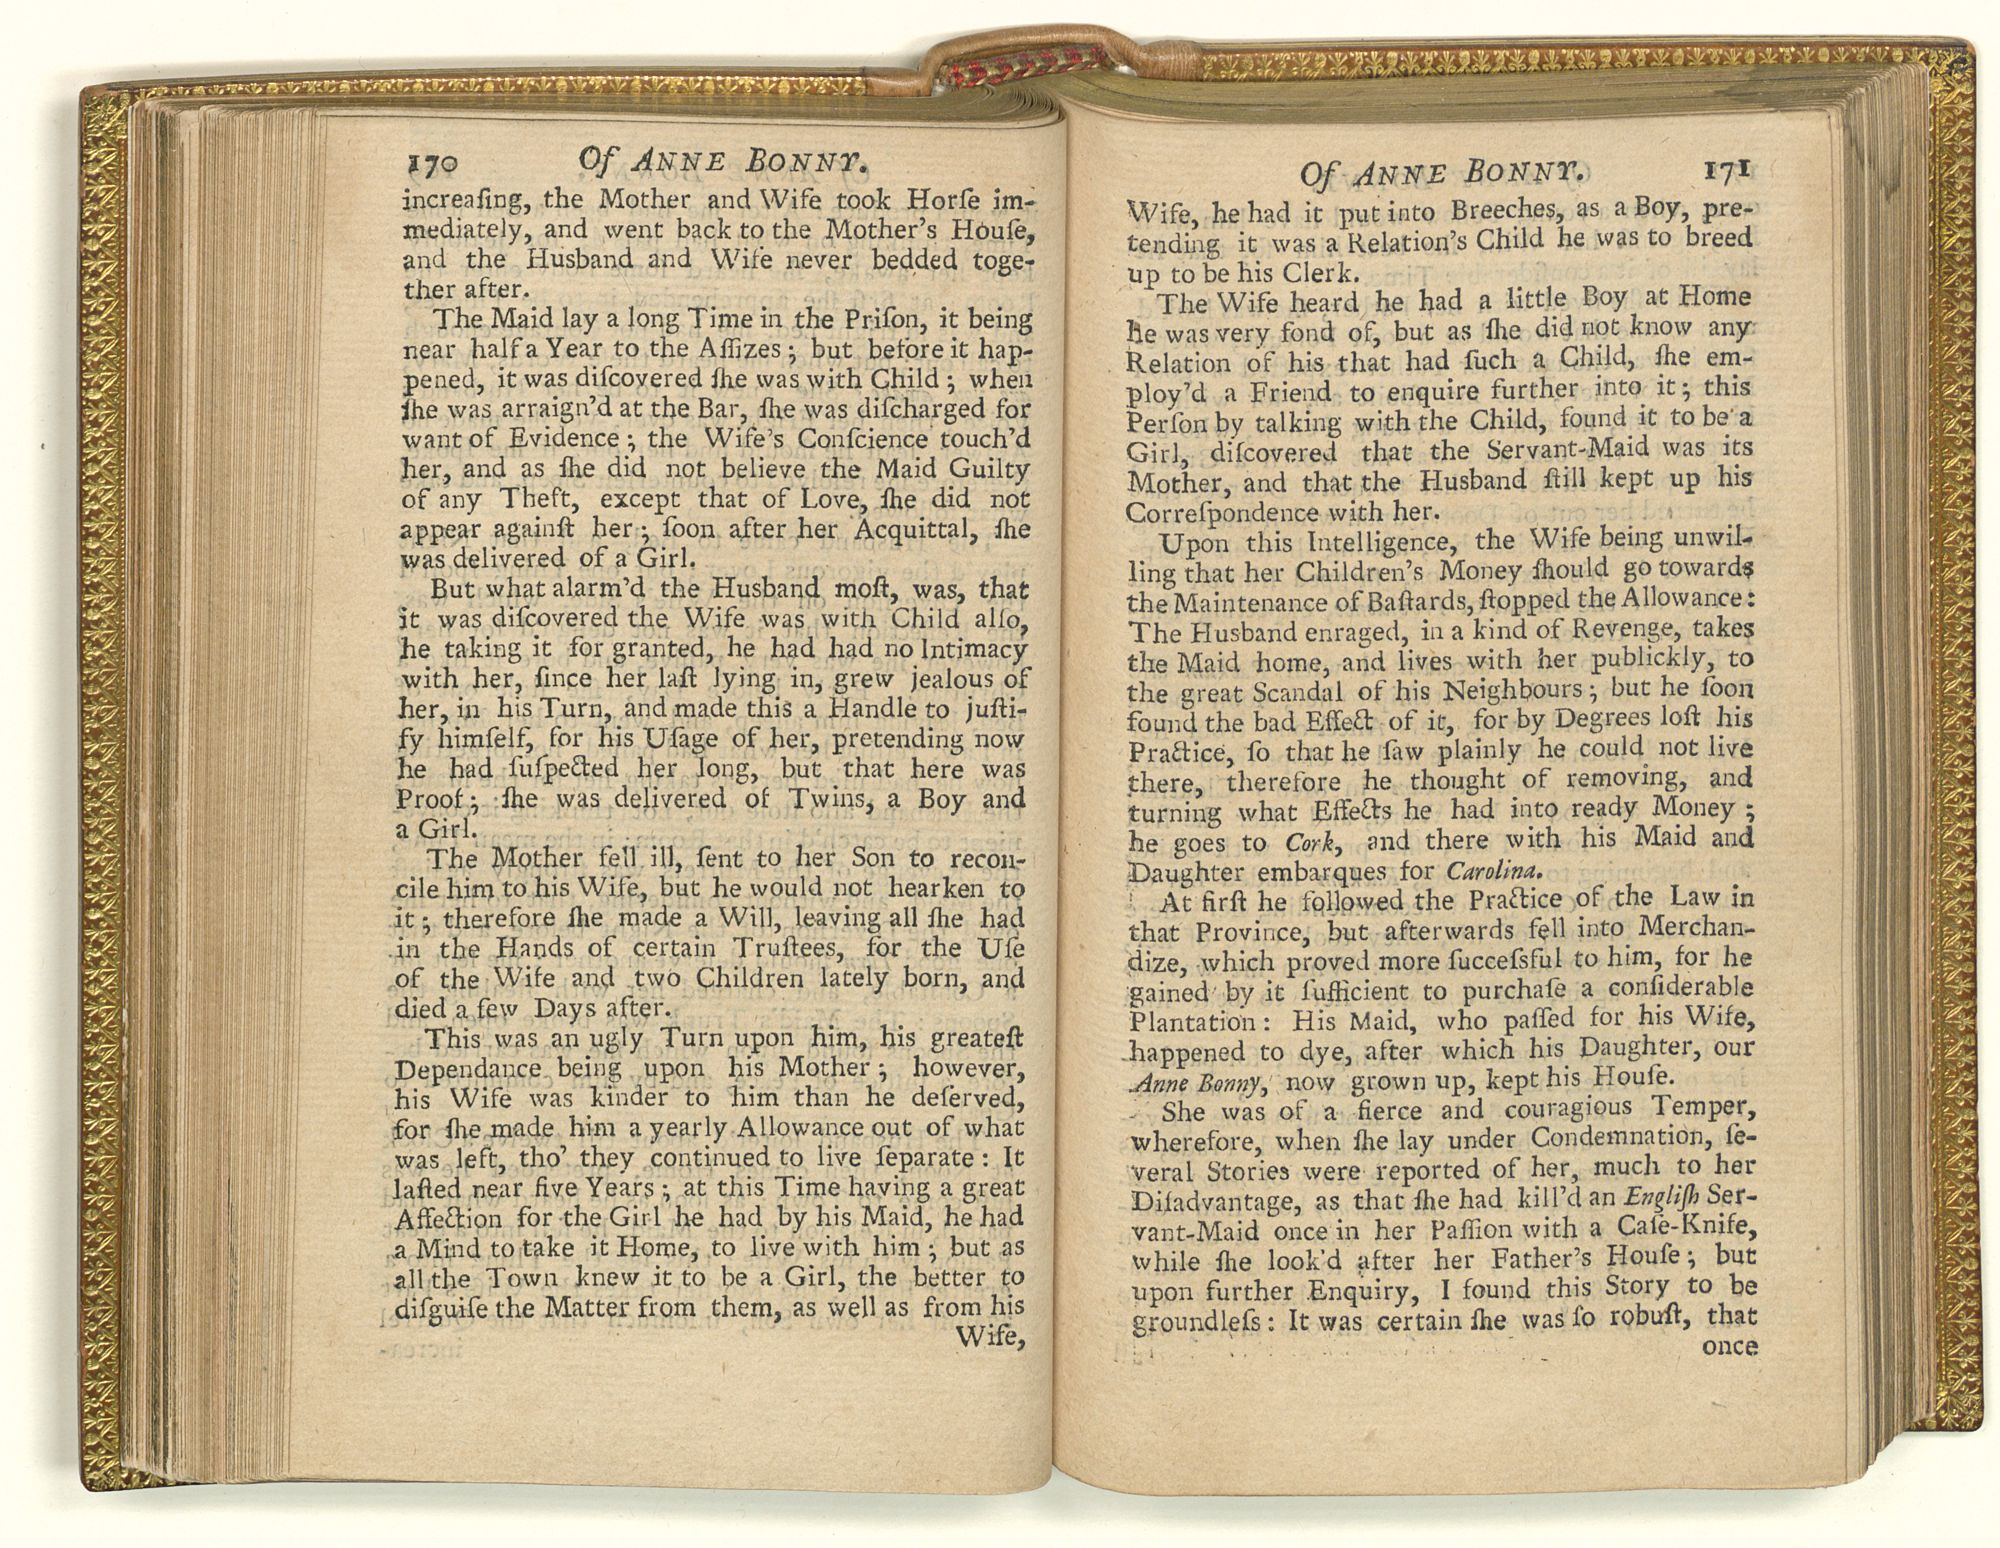 170 Of ANNE BONNY.
increaſing, the Mother and Wife took Horſe im-
mediately, and went back to the Mother's Houſe,
and the Husband and Wife never bedded toge-
ther after.
The Maid lay a long Time in the Priſon, it being
near half a Year to the Aſſizes; but before it hap-
pened, it was diſcovered ſhe was with Child; when
ſhe was arraign'd at the Bar, ſhe was diſcharged for
want of Evidence; the Wife's Conſcience touch'd
her, and as ſhe did not believe the Maid Guilty
of any Theft, except that of Love, ſhe did not
appear againſt her; ſoon after her Acquittal, ſhe
was delivered of a Girl.
But what alarm'd the Husband moſt, was, that
it was diſcovered the Wife was with Child alſo,
he taking it for granted, he had had no Intimacy
with her, ſince her laſt lying in, grew jealous of
her, in his Turn, and made this a Handle to juſti-
fy himſelf, for his Uſage of her, pretending now
he had ſuſpected her long, but that here was
Proof; ſhe was delivered of Twins, a Boy and
a Girl.
The Mother fell ill, ſent to her Son to recon-
cile him to his Wife, but he would not hearken to
it; therefore ſhe made a Will, leaving all ſhe had
in the Hands of certain Truſtees, for the Uſe
of the Wife and two Children lately born, and
died a few Days after.
This was an ugly Turn upon him, his greateſt
Dependance being upon his Mother; however,
his Wife was kinder to him than he deſerved,
for ſhe made him a yearly Allowance out of what
was left, tho' they continued to live ſeparate: It
laſted near five Years; at this Time having a great
Affection for the Girl he had by his Maid, he had
a Mind to take it Home, to live with him; but as
all the Town knew it to be a Girl, the better to
diſguiſe the Matter from them, as well as from his
Wife,
Of ANNE BONNY. 171
Wife, he had it put into Breeches, as a Boy, pre-
tending it was a Relation's Child he was to breed
up to be his Clerk.
The Wife heard he had a little Boy at Home
he was very fond of, but as ſhe did not know any
Relation of his that had ſuch a Child, ſhe em-
ploy'd a Friend to enquire further into it; this
Perſon by talking with the Child, found it to be a
Girl, diſcovered that the Servant-Maid was its
Mother, and that the Husband ſtill kept up his
Correſpondence with her.
Upon this Intelligence, the Wife being unwil-
ling that her Children's Money ſhould go towards
the Maintenance of Baſtards, ſtopped the Allowance:
The Husband enraged, in a kind of Revenge, takes
the Maid home, and lives with her publickly, to
the great Scandal of his Neighbours; but he ſoon
found the bad Effect of it, for by Degrees loſt his
Practice, ſo that he ſaw plainly he could not live
there, therefore he thought of removing, and
turning what Effects he had into ready Money;
he goes to Cork, and there with his Maid and
Daughter embarques for Carolina.
At firſt he followed the Practice of the Law in
that Province, but afterwards fell into Merchan-
dize, which proved more ſucceſsful to him, for he
gained by it ſufficient to purchaſe a conſiderable
Plantation: His Maid, who paſſed for his Wife,
happened to dye, after which his Daughter, our
Anne Bonny, now grown up, kept his Houſe.
She was of a fierce and couragious Temper,
wherefore, when ſhe lay under Condemnation, ſe-
veral Stories were reported of her, much to her
Diſadvantage, as that ſhe had kill'd an Engliſh Ser-
vant-Maid once in her Paſſion with a Caſe-Knife,
while ſhe look'd after her Father's Houſe; but
upon further Enquiry, I found this Story to be
groundleſs: It was certain ſhe was ſo robuſt, that
once